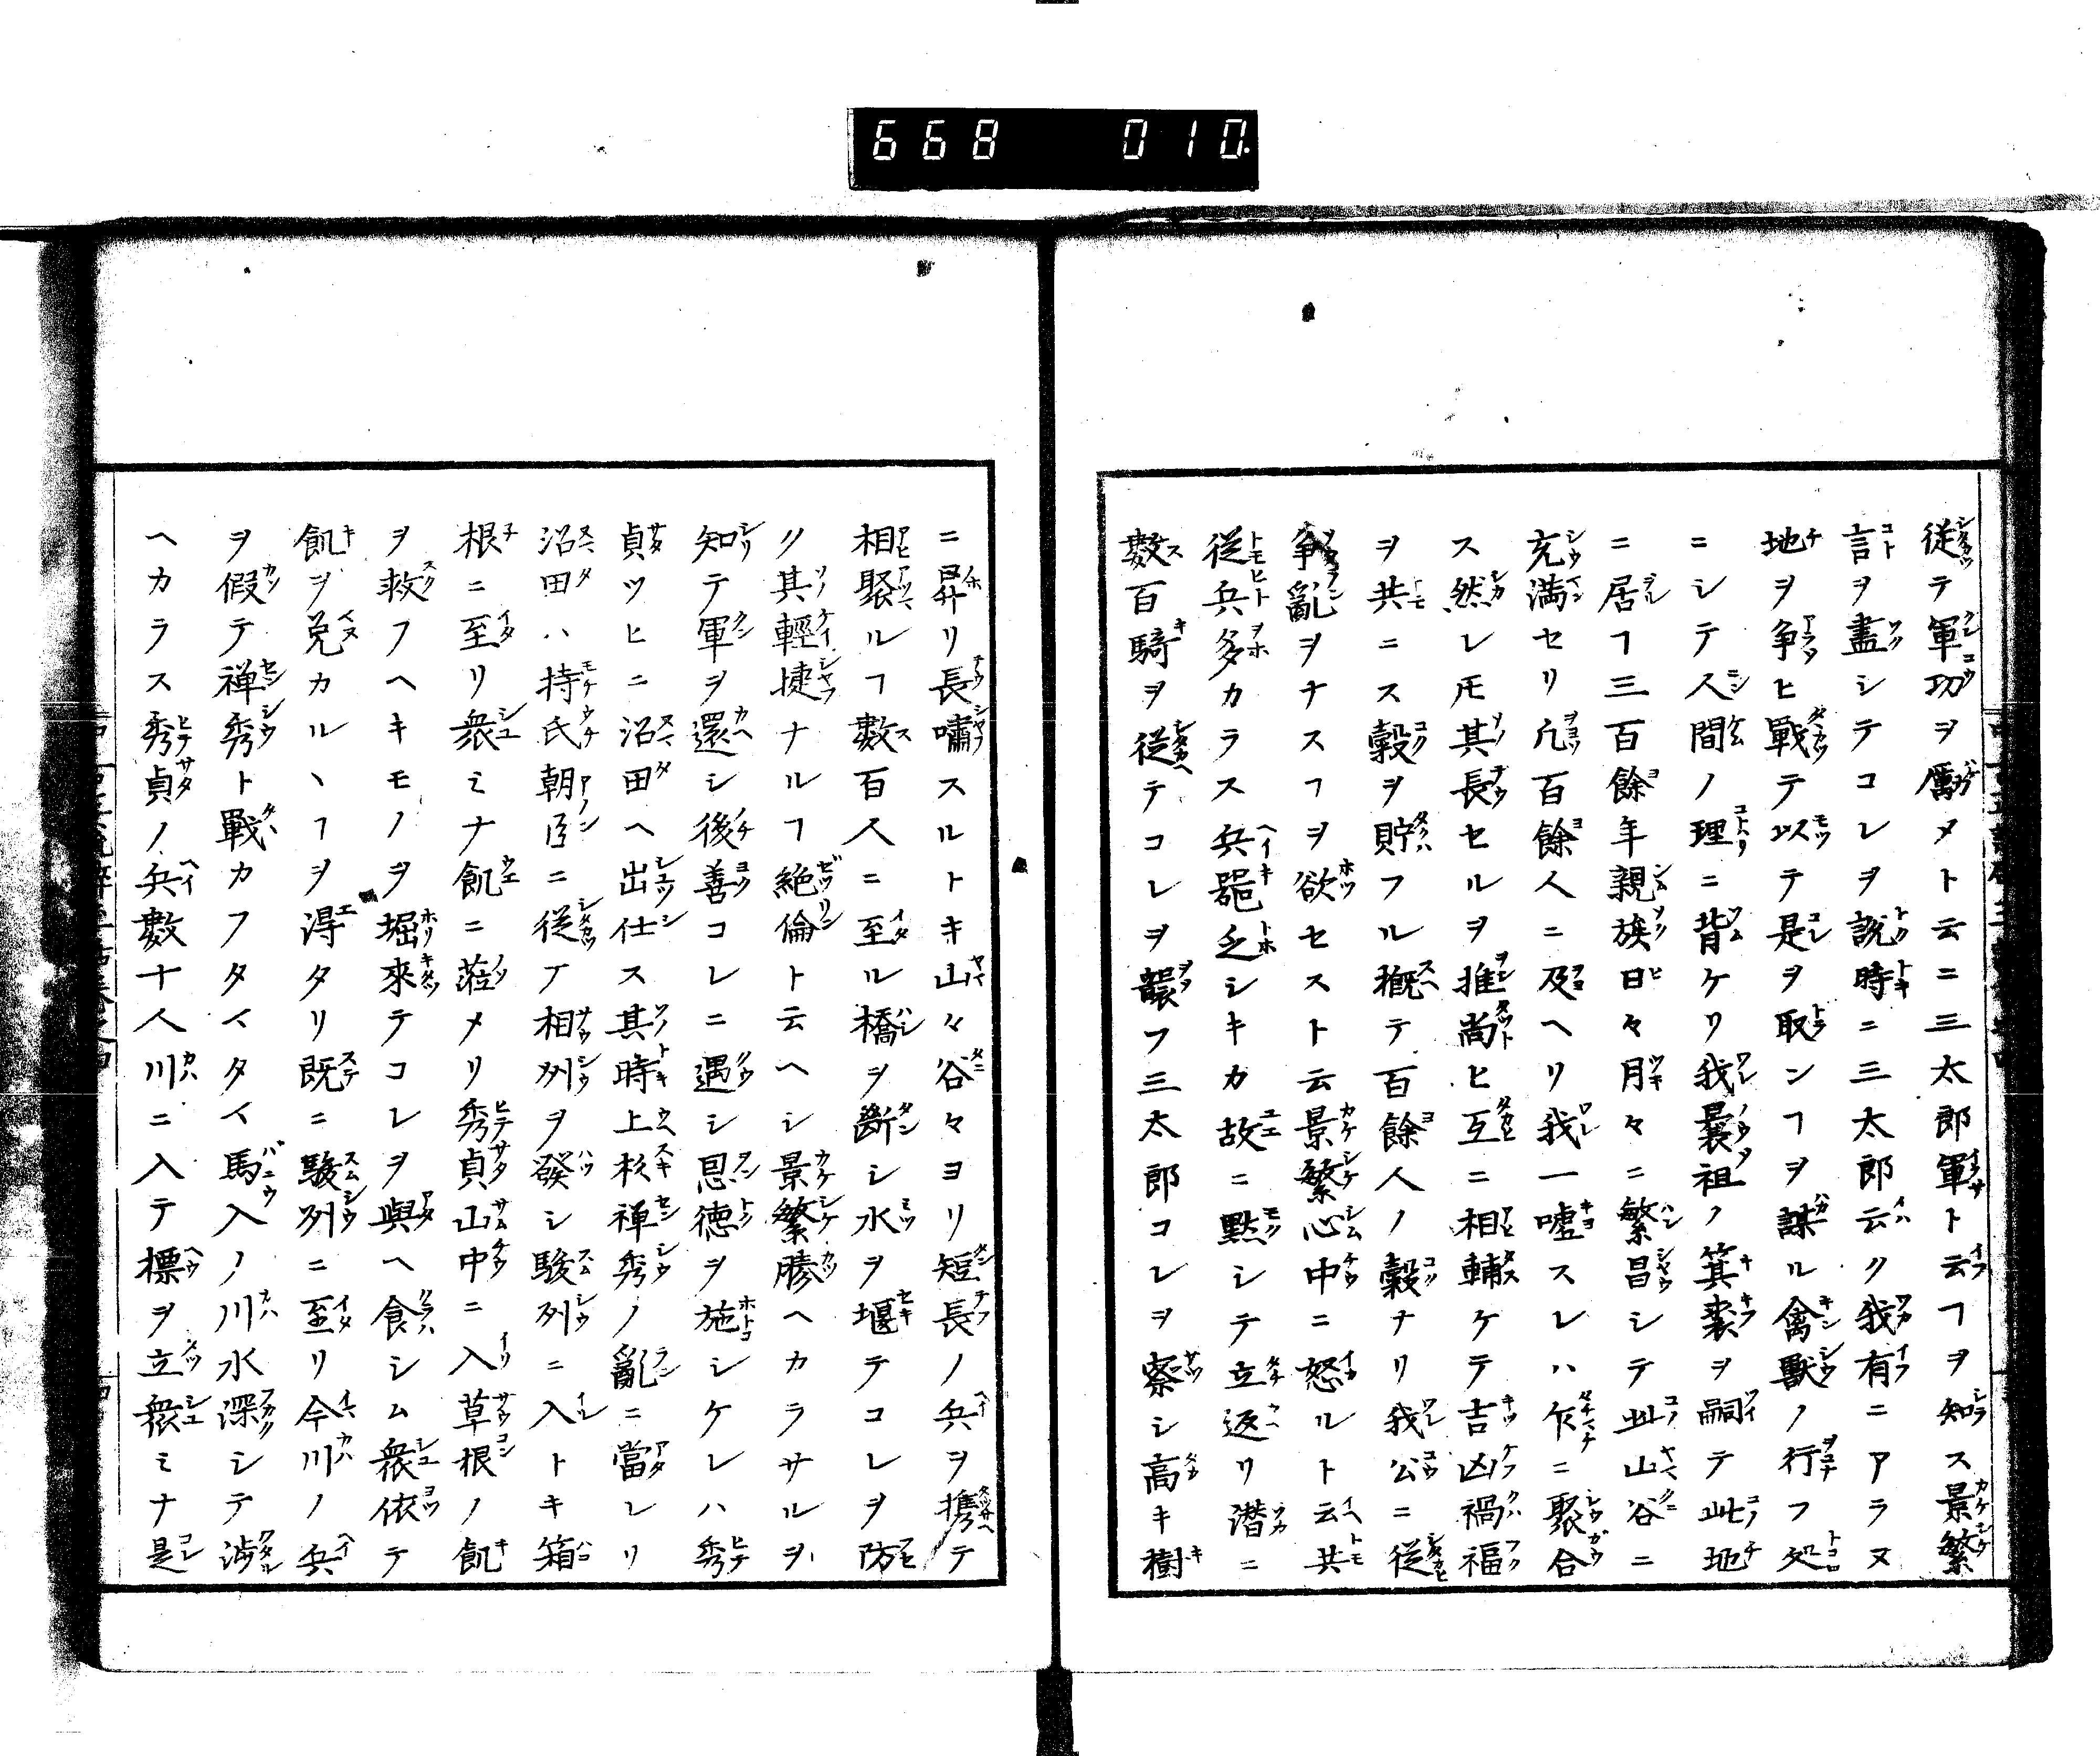 668 010
従テ軍功ヲ厲メト云ニ三太郎軍ト云フヿヲ知ス景繁
言ヲ盡シテコレヲ説時ニ三太郎云ク我有ニアラヌ
地ヲ争ヒ戰テ以テ是ヲ取ンヿヲ謀ル禽獸ノ行フ処
ニシテ人間ノ理ニ背ケリ我曩祖ノ箕裘ヲ嗣テ此地
ニ居ヿ三百餘年親族日々月々ニ繁昌シテ此山谷ニ
充満セリ凡百餘人ニ及ヘリ我一嘘スレハ乍ニ聚合
ス然レ𪜈其長セルヲ推尚ヒ互ニ相輔ケテ吉凶禍福
ヲ共ニス穀ヲ貯フル概テ百餘人ノ穀ナリ我公ニ從
争亂ヲナスヿヲ欲セスト云景繁心中ニ怒ルト云共
従兵多カラス兵器乏シキカ故ニ黙シテ立返リ潜ニ
數百騎ヲ従テコレヲ襲フ三太郎コレヲ察シ高キ樹
ニ昇リ長嘯スルトキ山々谷々ヨリ短長ノ兵ヲ携テ
相聚ルヿ數百人ニ至ル橋ヲ斷シ水ヲ堰テコレヲ防
ク其輕捷ナルヿ絶倫ト云ヘシ景繁勝ヘカラサルヲ
知テ軍ヲ還シ後善コレニ遇シ恩徳ヲ施シケレハ秀
貞ツヒニ沼田ヘ出仕ス其時上杉禅秀ノ亂ニ當レリ
沼田ハ持氏朝臣ニ従テ相州ヲ發シ駿州ニ入トキ箱
根ニ至リ衆ミナ飢ニ莅メリ秀貞山中ニ入草根ノ飢
ヲ救フヘキモノヲ堀來テコレヲ與ヘ食シム衆依テ
飢ヲ免カルヽヿヲ得タリ既ニ駿州ニ至リ今川ノ兵
ヲ假テ禅秀ト戰カフタイタイ馬入ノ川水深シテ渉
ヘカラス秀貞ノ兵數十人川ニ入テ標ヲ立衆ミナ是